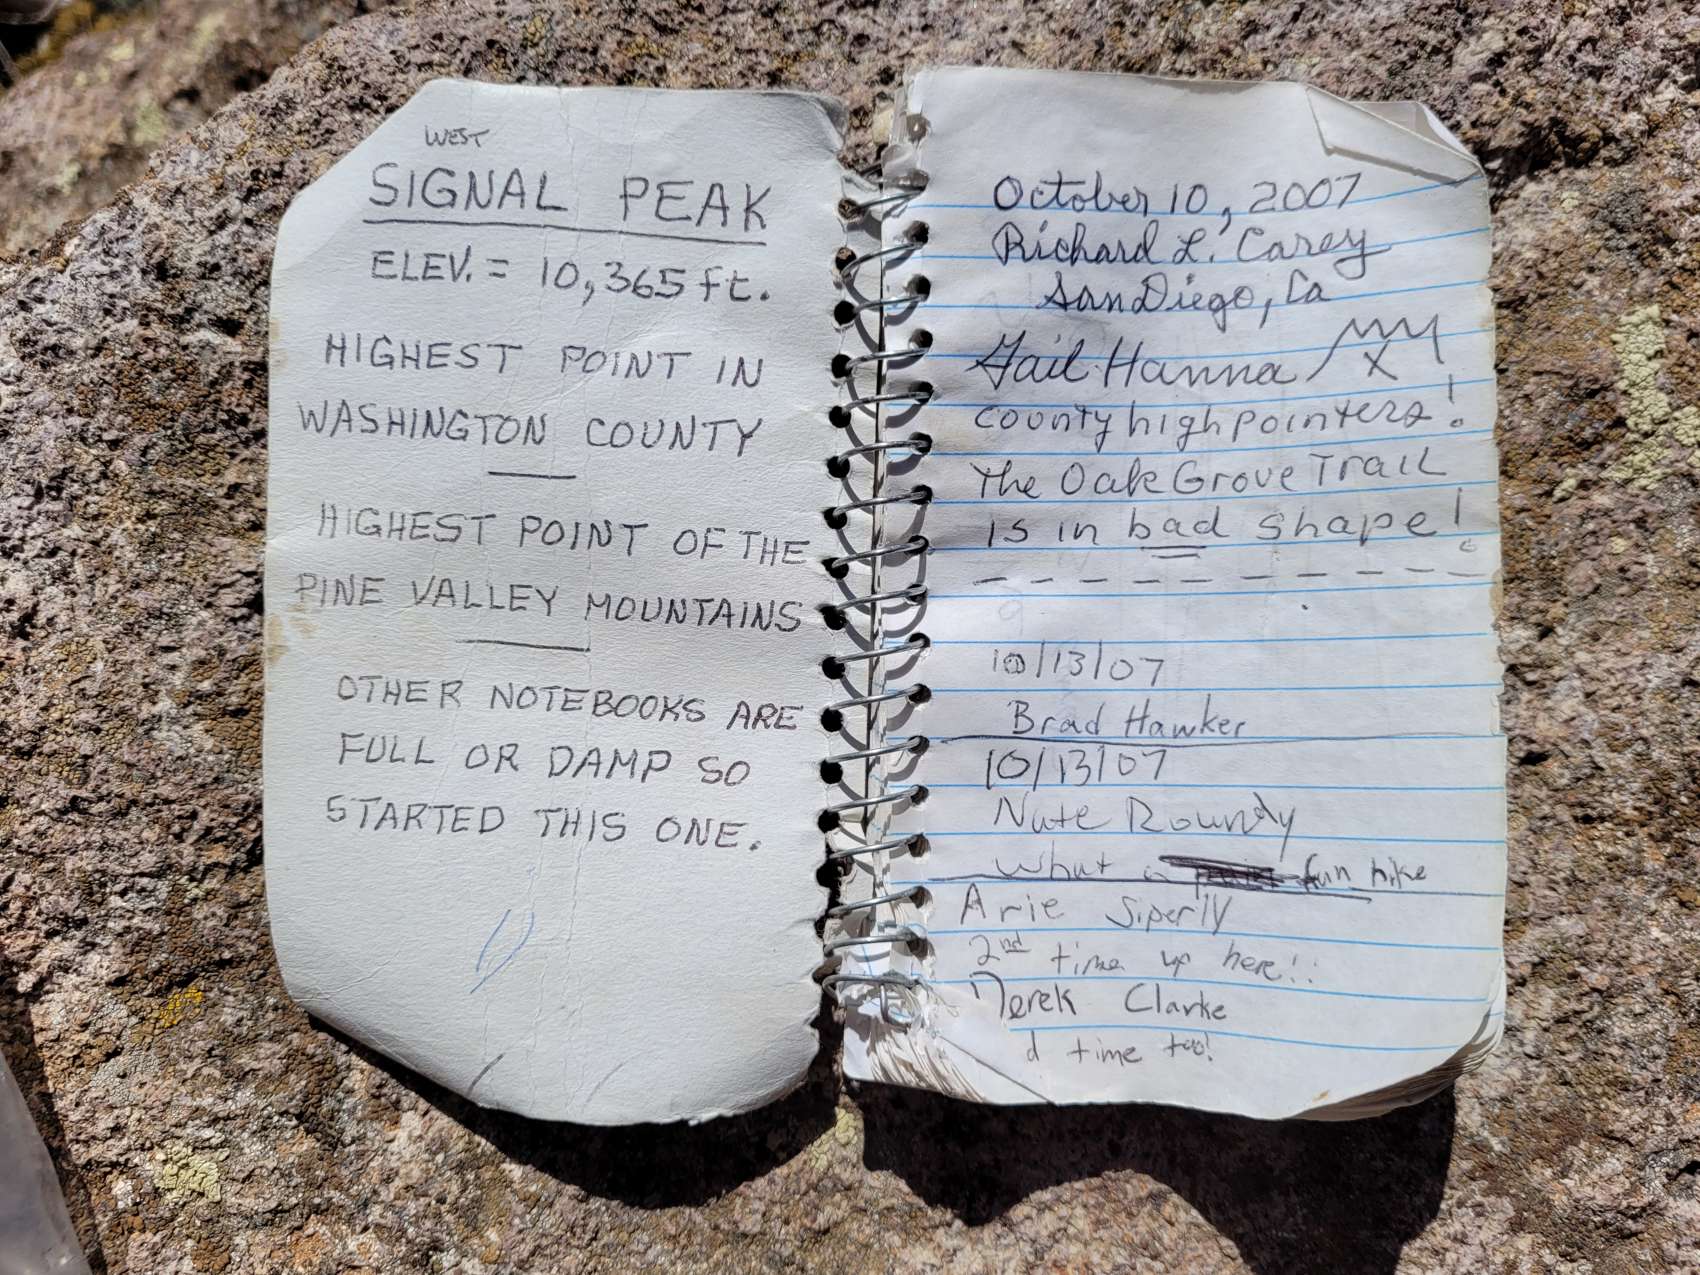 WEST
SIGNAL PEAK
ELEV. = 10,365 ft.
HIGHEST POINT IN
WASHINGTON COUNTY
HIGHEST POINT OF THE
PINE VALLEY MOUNTAINS
OTHER NOTEBOOKS ARE
FULL OR DAMP SO
STARTED THIS ONE.
October 10, 2007
Richard L. Carey
San Diego, Ca
Gail Hanna
County high pointers!
The Oak Grove Trail
is in bad shape!
10/13/07
Brad Hawker
10/13/07
Nate Roundy
What a fun hike
Arie Siperly
2nd time up here!!
Derek Clarke
d time too!